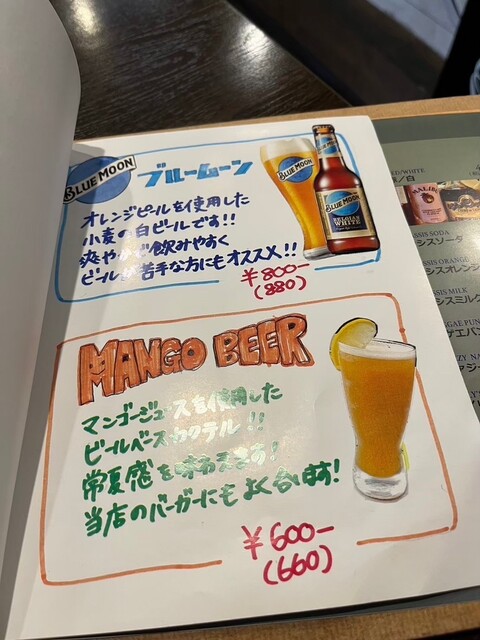 BLUE MOON
ブルームーン
オレンジピールを使用した
小麦の白ビールです!!
爽やかで飲みやすく
ビールが苦手な方にもオススメ!!
¥800-
(880)
BLUE MOON
BLUE MOON
BELGIAN
WHITE
MANGO BEER
マンゴージュースを使用した
ビールベースカクテル!!
常夏感を味わえます!
当店のバーガーにもよく合います!
¥600-
(660)
/WHITE
/白
MALIBU
SSIS SODA
シスソーダ
SSIS ORANGE
シスオレンジ
SSIS MILK
シスミルク